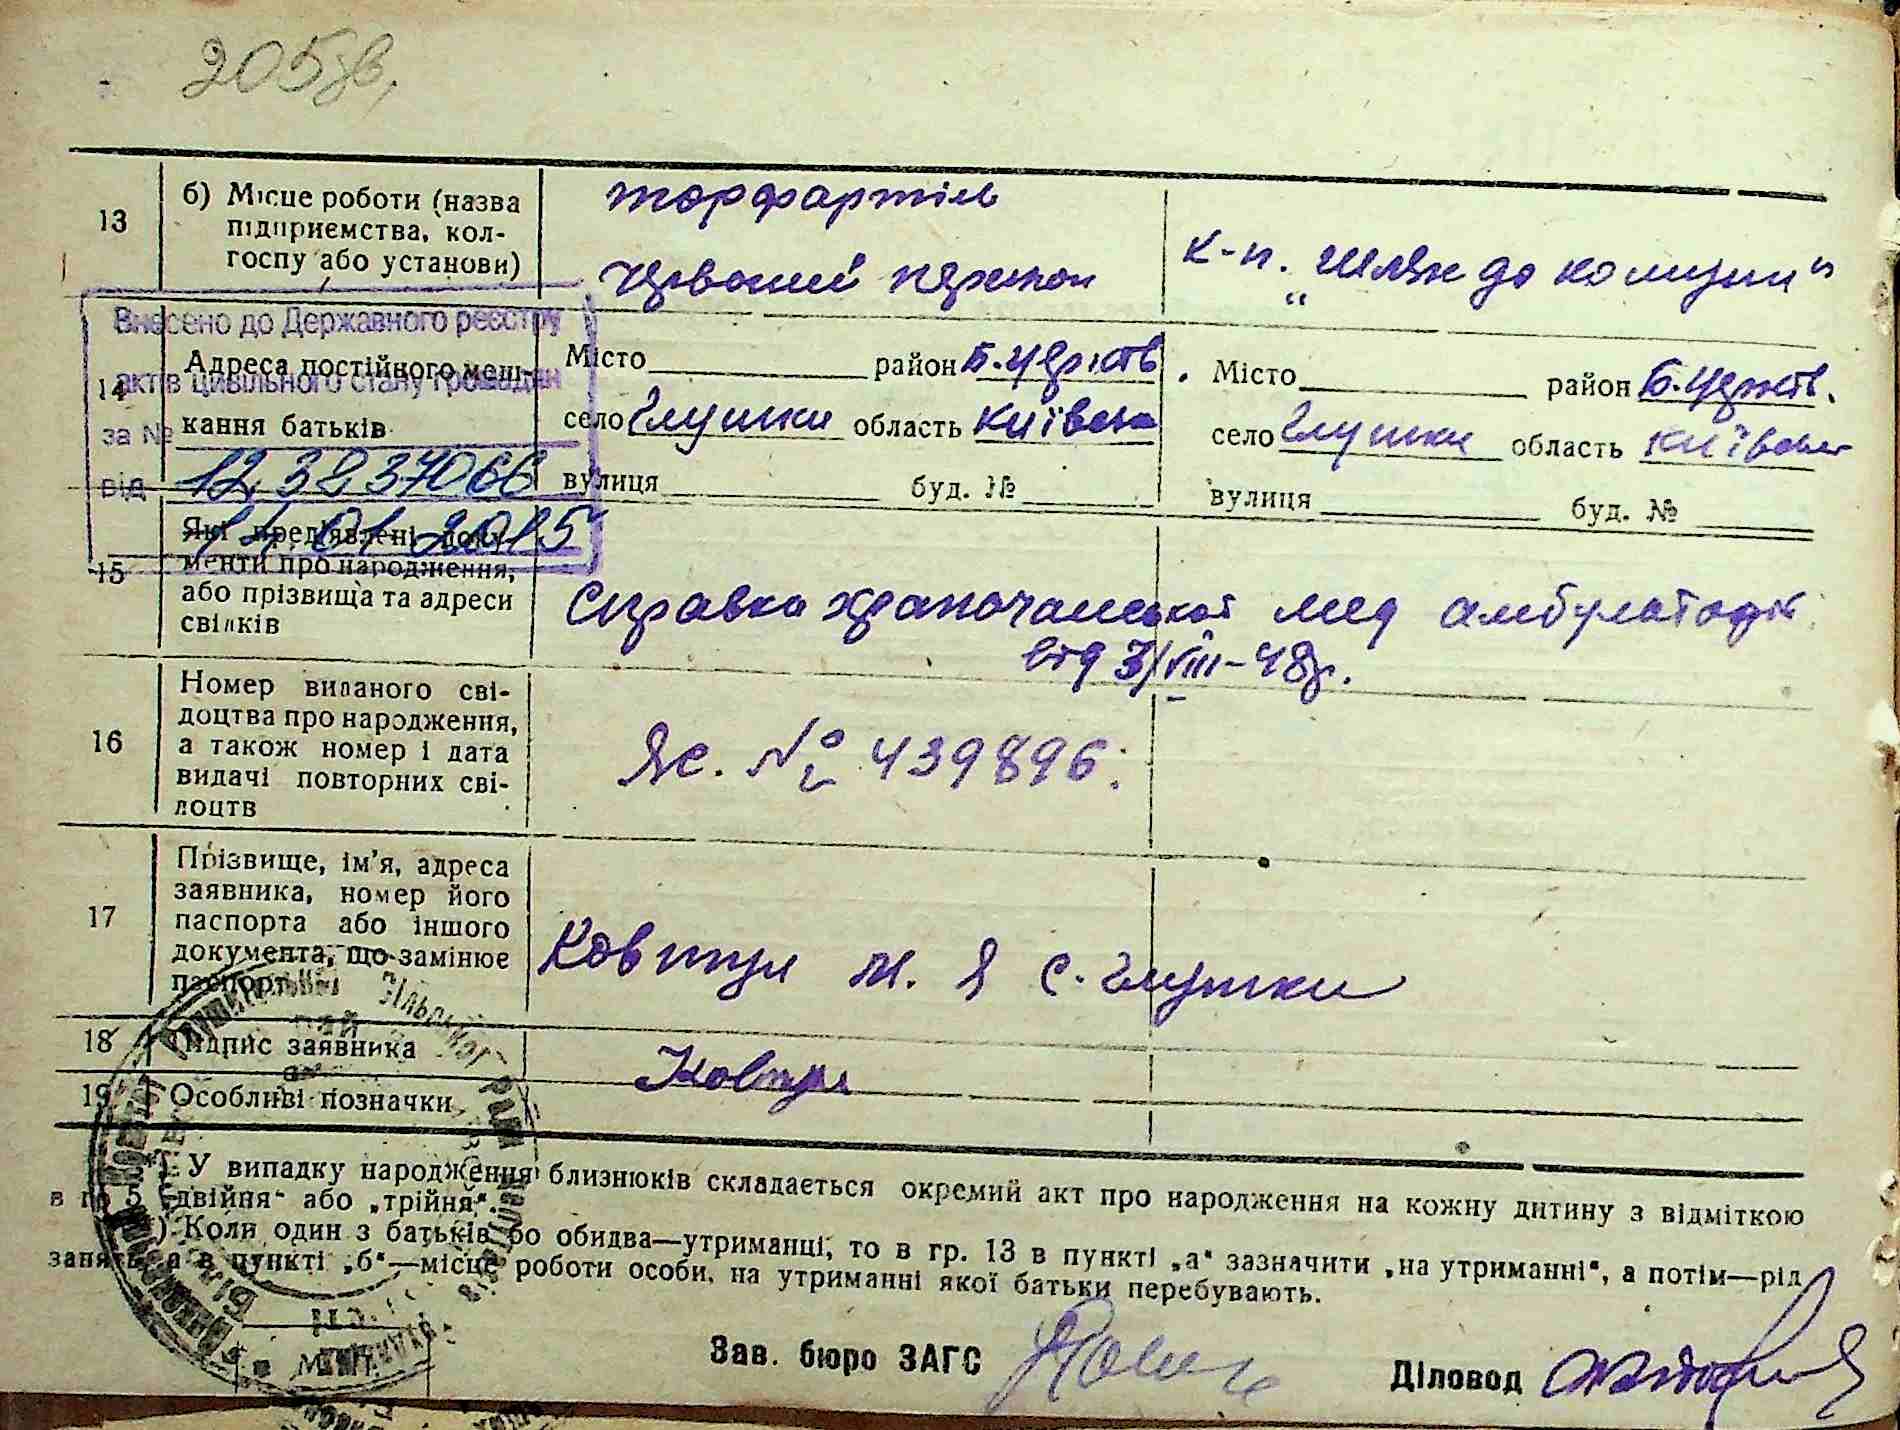 205зв,
13
б) Місце роботи (назва
підприємства, кол-
госпу або установи)
торфартіль
Червоний перекоп
к-п. „Шлях до комуни"
Внесено до Державного реєстру
актів цивільного стану громадян
за №
12,3237066
від
14.01.2015
14
Адреса постійного меш-
кання батьків
Місто район Б.церків
село Глушки область Київська
вулиця буд. №
Місто район Б.церків.
село Глушки область Київська
вулиця буд. №
15
Які пред'явлені доку-
менти про народження,
або прізвища та адреси
свідків
Справка мед амбулаторії
від 3/VIII-48р.
16
Номер виданого сві-
доцтва про народження,
а також номер і дата
видачі повторних сві-
доцтв
ЯС. № 439896.
17
Прізвище, ім'я, адреса
заявника, номер його
паспорта або іншого
документа, що замінює
паспорт
Ковтун М. Я с. Глушки
18
Підпис заявника
Ковтун
19
Особливі позначки
*). У випадку народження близнюків складається окремий акт про народження на кожну дитину з відміткою
в гр. 5 „двійня" або „трійня".
) Коли один з батьків бо обидва—утриманці, то в гр. 13 в пункті „а" зазначити „на утриманні", а потім—рід
занять, а в пункті „б"—місце роботи особи, на утриманні якої батьки перебувають.
Зав. бюро ЗАГС
Діловод